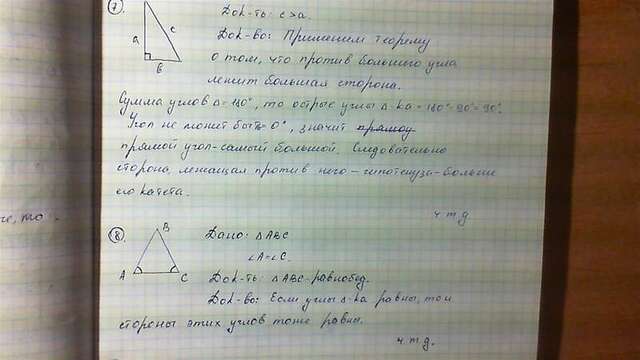 7
a c
в
Док-ть: c > a.
Док-во: Применим теорему
о том, что против большего угла
лежит большая сторона.
Сумма углов Δ = 180°, то острые углы Δ-ка = 180°-90°=90°.
Угол не может быть 0°, значит прямоу
прямой угол-самый большой. Следовательно
сторона, лежащая против него - гипотенуза-больше
его катета.
ч т д
че, то.
8
B
A C
Дано: ΔABC
∠A=∠C.
Док-ть: ΔABC-равнобед.
Док-во: Если углы Δ-ка равны, то и
стороны этих углов тоже равны.
ч т д.